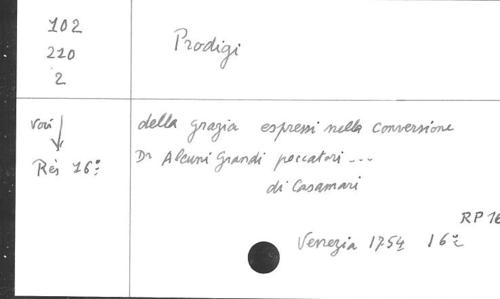 102
210
2
Prodigi
voir
Rés 16º
della grazia espressi nella conversione
Di Alcuni Grandi peccatori...
di Casamari
RP 16
Venezia 1754 16º